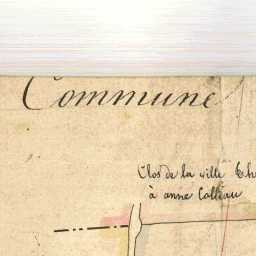 Commune
Clos de la ville
à anne Colleau